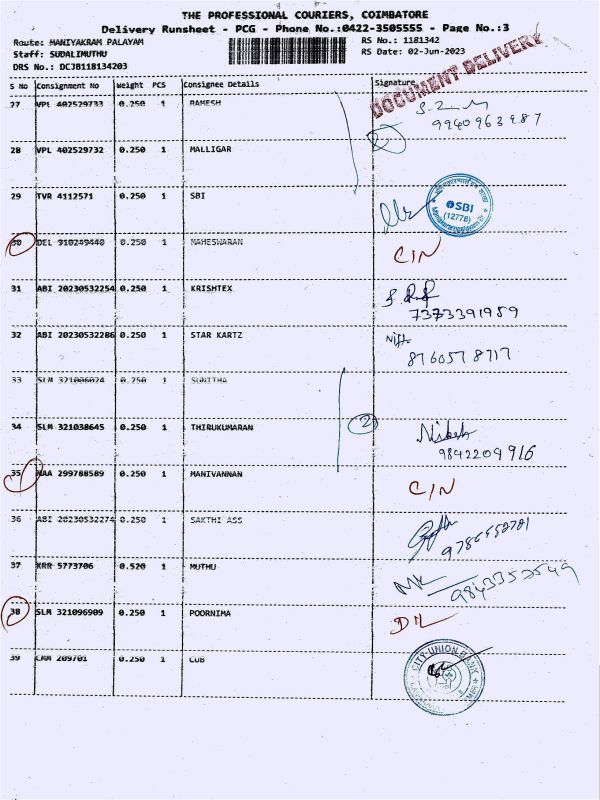 THE PROFESSIONAL COURIERS, COIMBATORE
Delivery Runsheet - PCG - Phone No.:0422-3505555 - Page No.:3
Route: MANIYAKRAM PALAYAM
RS No.: 1181342
Staff: SUDALIMUTHU
RS Date: 02-Jun-2023
DRS No.: DCJB118134203
DOCUMENT DELIVERY
S No Consignment No Weight PCS Consignee Details Signature
27 VPL 402529733 0.250 1 RAMESH
28 VPL 402529732 0.250 1 MALLIGAR
29 TVR 4112571 0.250 1 SBI
SBI
(12778)
30 DEL 910249440 0.250 1 MAHESWARAN C/N
31 ABI 20230532254 0.250 1 KRISHTEX
7373391959
32 ABI 20230532286 0.250 1 STAR KARTZ
8760578717
33 SLM 321086024 0.250 1 SUNITHA
34 SLM 321038645 0.250 1 THIRUKUMARAN 2 Nikesh
9842209916
35 NAA 299788589 0.250 1 MANIVANNAN C/N
36 ABI 20230532274 0.250 1 SAKTHI ASS
37 KRR 5773706 0.520 1 MUTHU
9843352549
38 SLM 321096909 0.250 1 POORNIMA D/L
39 CMM 209701 0.250 1 CUB
CITY UNION BANK